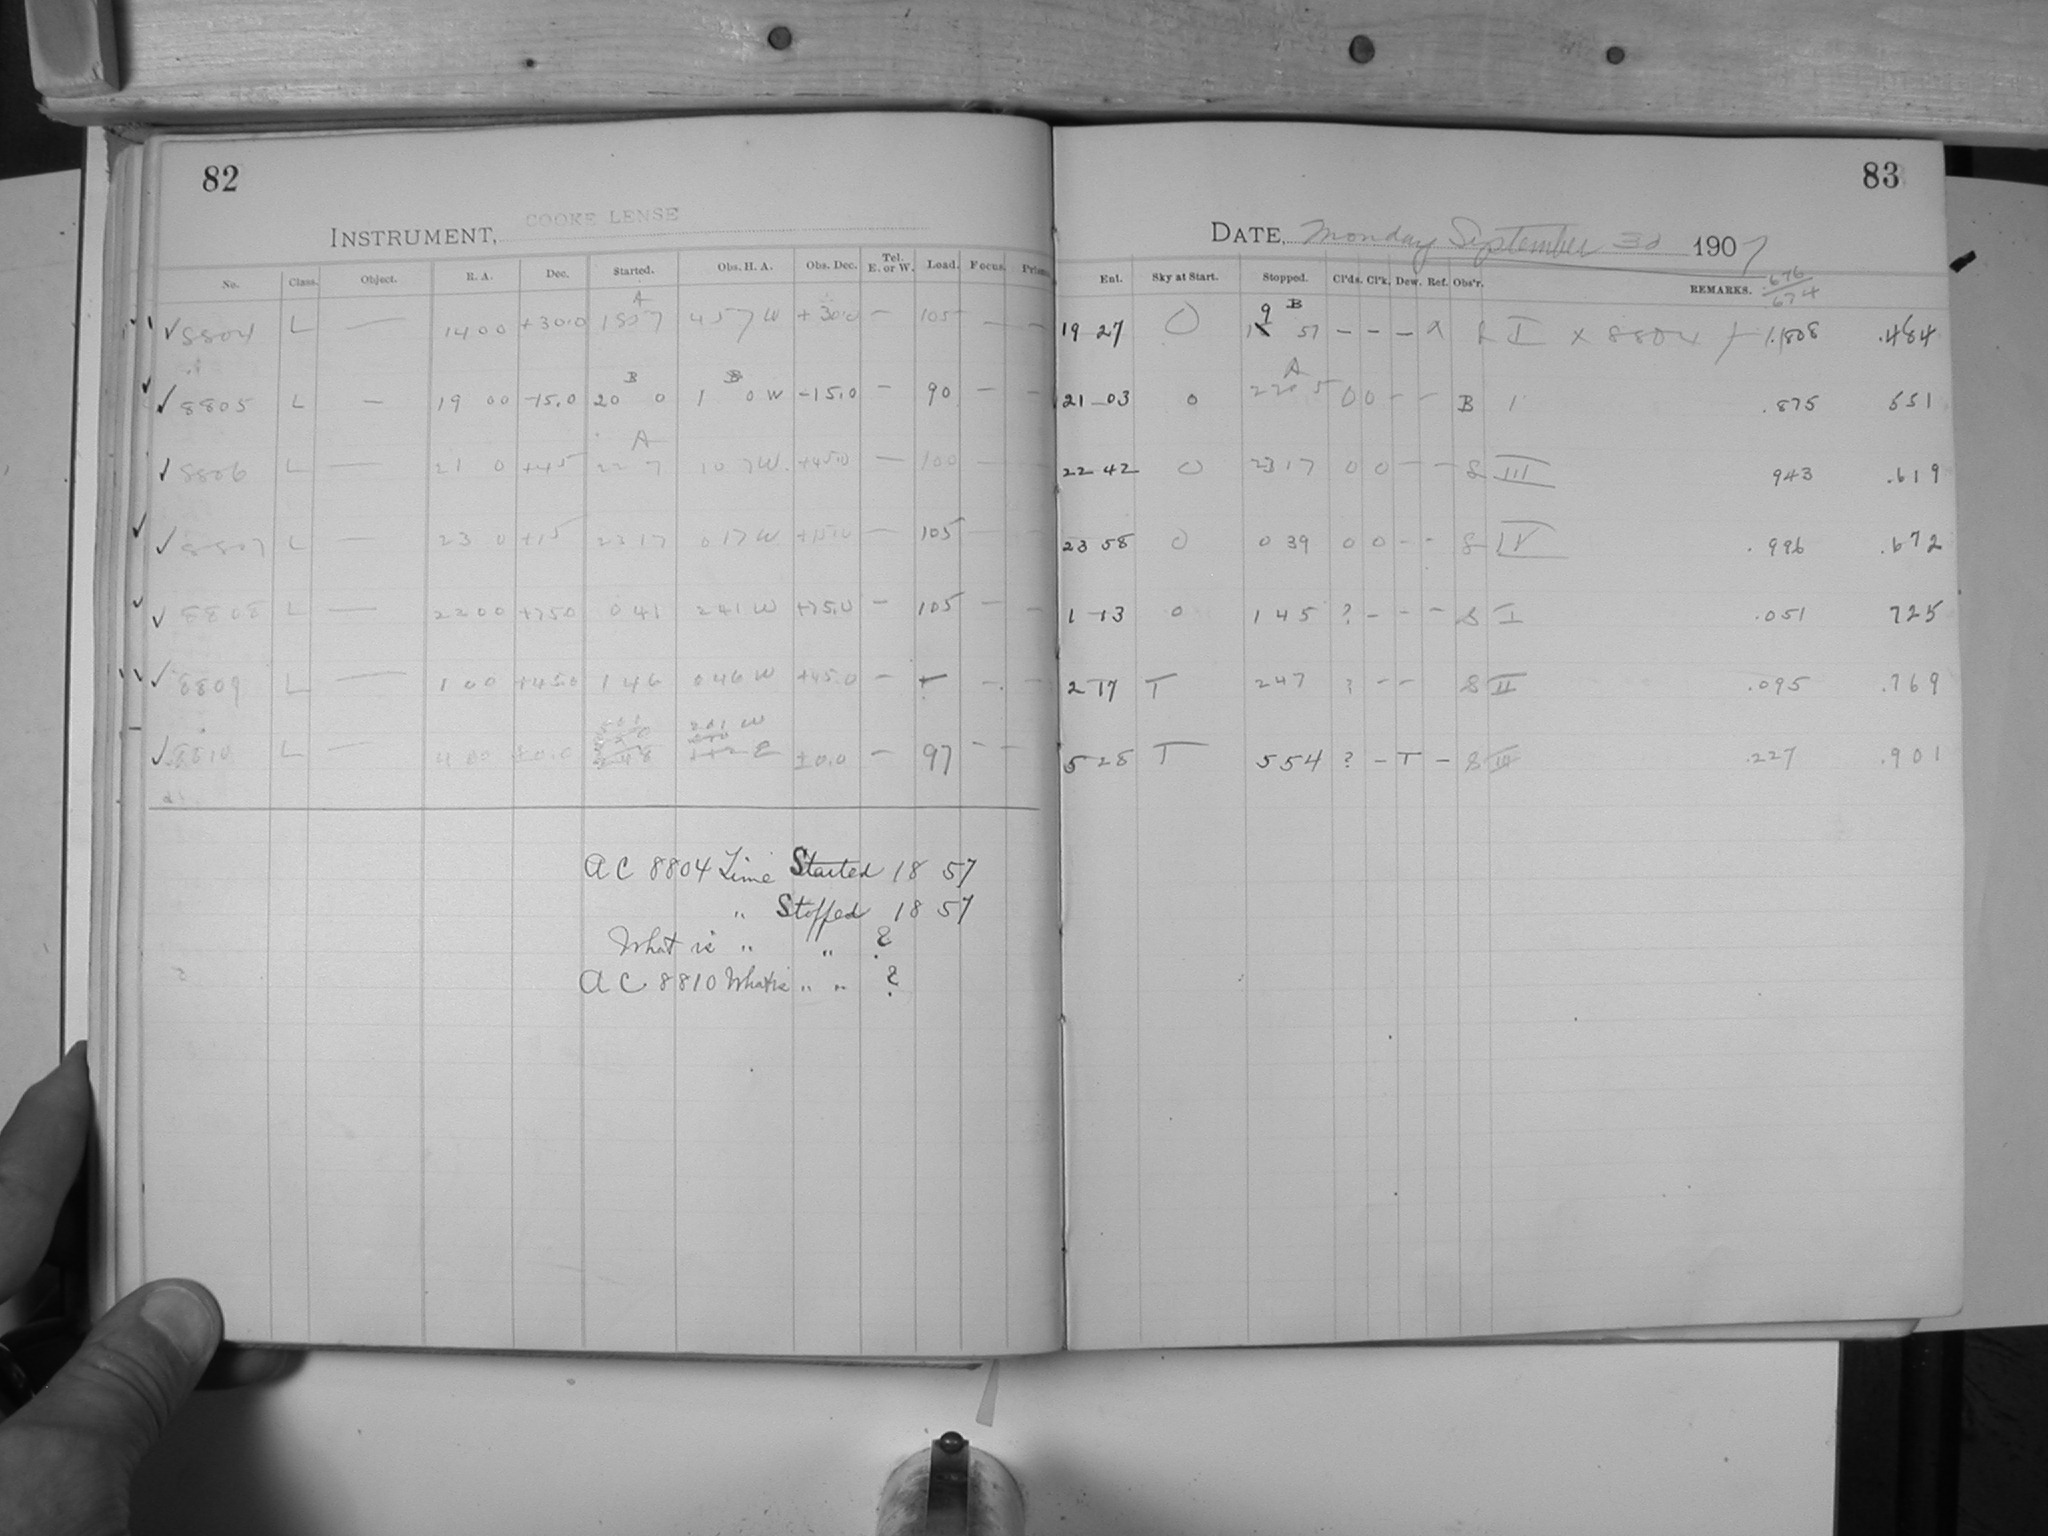 82
INSTRUMENT, COOKE LENSE
No. Class. Object. R. A. Dec. Started. Obs. H. A. Obs. Dec. Tel. E. or W. Load. Focus. Prism
A
✓ 8804 L — 14 00 +30.0 18 57 4 57 W +30.0 — 105 — —
B B
✓ 8805 L — 19 00 -15.0 20 0 1 0 W -15.0 — 90 — —
A
✓ 8806 L — 21 0 +45 22 7 1 07 W. +45.0 — 100 — —
✓ 8807 L — 23 0 +15 23 17 0 17 W +15.0 — 105 — —
✓ 8808 L — 22 00 +75.0 0 41 2 41 W +75.0 — 105 — —
✓ 8809 L — 1 00 +45.0 1 46 0 46 W +45.0 — — — —
✓ 8810 L — 4 00 ±0.0 ±0.0 — 97 — —
AC 8804 Time Started 18 57
" Stopped 18 57
What is " " ?
AC 8810 What is " " ?
83
DATE, Monday September 30 1907
Ent. Sky at Start. Stopped. Cl'ds. Cl'k. Dew. Ref. Obs'r. REMARKS. .676
674
9 B
19 27 O 57 — — — I × 8804 1.808 .484
A
21 03 0 22 05 0 0 - - B 1 .875 551
22 42 O 23 17 0 0 — — S III 943 .619
23 58 O 0 39 0 0 - - S IV .996 .672
1 13 0 1 45 ? - - - S I .051 725
2 17 T 2 47 ? - - S II .095 .769
5 28 T 5 54 ? - T - S III .227 .901